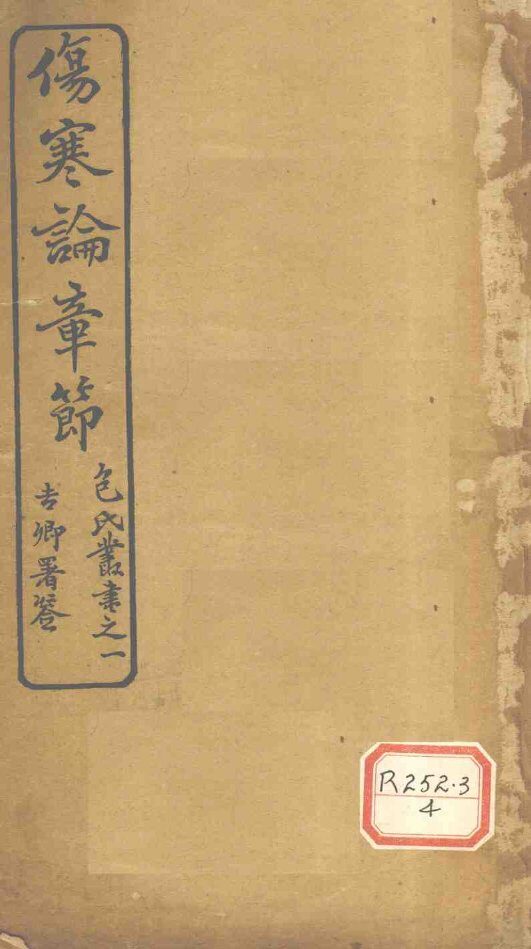 傷寒論章節
包氏叢書之一
吉卿署簽
R252.3
4